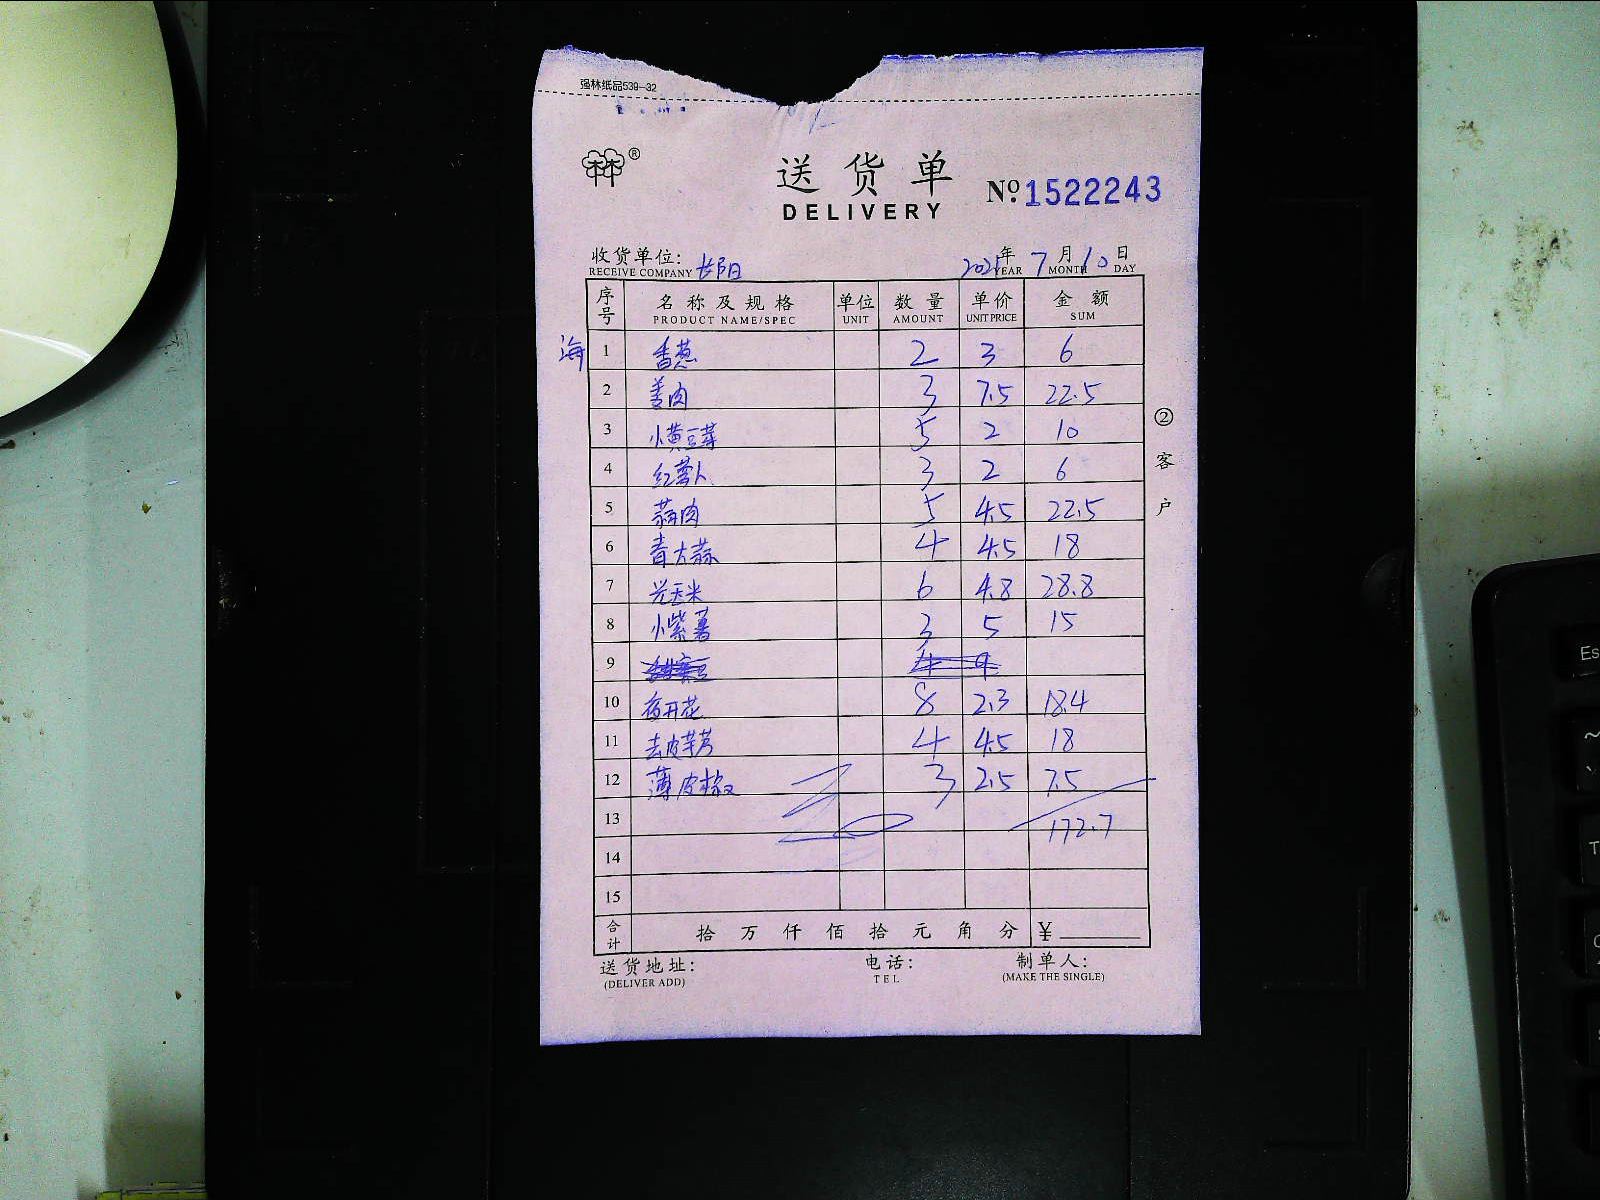 强林纸品539-32
林®
送货单 №1522243
DELIVERY
收货单位: 长阳 2025年 7月 10日
RECEIVE COMPANY YEAR MONTH DAY
序号 名称及规格 单位 数量 单价 金额
PRODUCT NAME/SPEC UNIT AMOUNT UNIT PRICE SUM
海 1 香葱 2 3 6
2 姜肉 3 7.5 22.5
3 小黄豆芽 5 2 10
4 红萝卜 3 2 6
5 蒜肉 5 4.5 22.5
6 青大蒜 4 4.5 18
7 光玉米 6 4.8 28.8
8 小紫薯 3 5 15
9 4 9
10 夜开花 8 2.3 18.4
11 去皮芋艿 4 4.5 18
12 薄皮椒 3 2.5 7.5
13 172.7
14
15
合计 拾 万 仟 佰 拾 元 角 分 ¥
送货地址: 电话: 制单人:
(DELIVER ADD) TEL (MAKE THE SINGLE)
②客户
Es